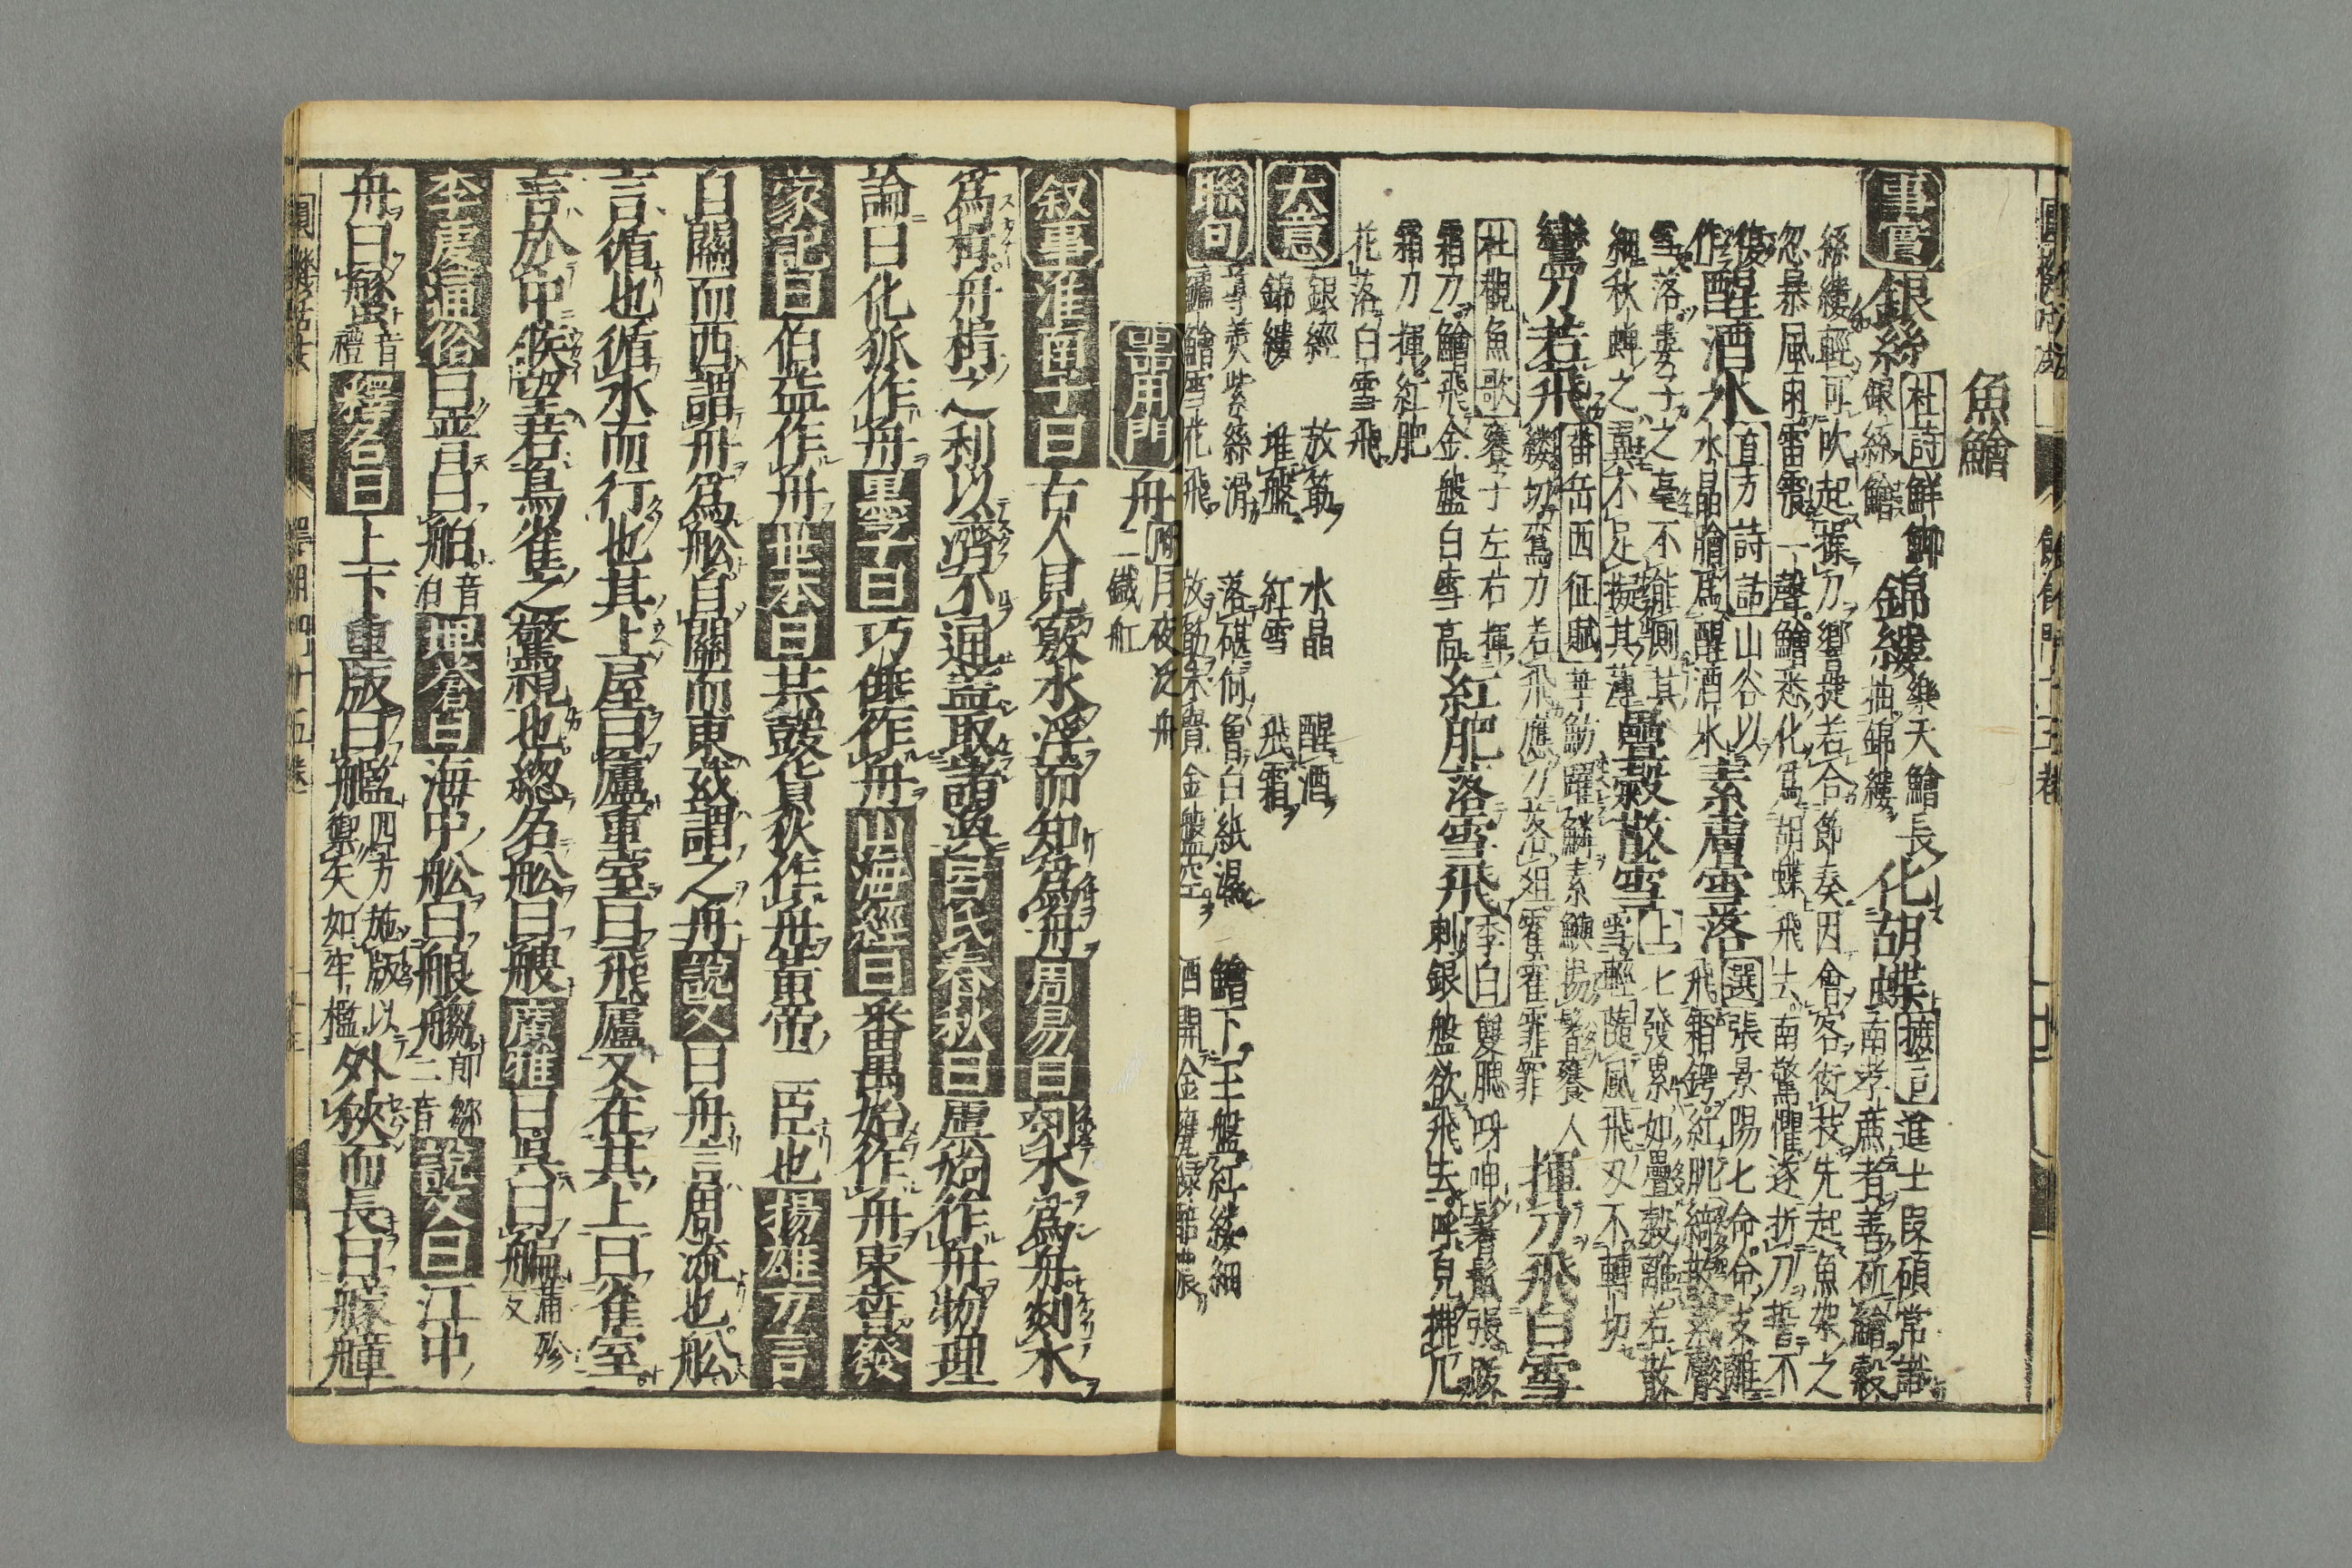 魚鱠
事實 銀絲 杜詩鮮鯽銀絲鱠 錦縷 樂天鱠長抽錦縷 化胡蝶 摭言進士段碩常識南孝廉者善斫鱠縠
絲縷輕可吹起操刀響捷若合節奏因會客衒技先起魚架之
忽暴風雨雷震一聲鱠悉化爲胡蝶飛去南驚懼遂折刀誓不
復作 醒酒水 直方詩話山谷以水晶膾爲醒酒氷 素膚雪落 選張景陽七命命支離飛霜鍔紅肌綺散素膚
雪落婁子之毫不能厠其細秋蟬之翼不足擬其薄 疊縠散雪 上七發累如疊縠離若散雪輕隨風飛刃不轉切
鸞刀若飛 潘岳西征賦華魴躍鱗素鱮揚鬐饔人縷切鸞刀若飛應刃落俎霍霍霏霏 揮刀飛白雪
杜觀魚歌饔子左右揮霜刀鱠飛金盤白雪高 紅肥落雪飛 李白雙鰓呀呻鬐鬣張跋剌銀盤欲飛去呼兒拂几
霜刀揮紅肥
花落白雪飛
大意 銀經 放筯 水晶 醒酒
錦縷 堆盤 紅雪 飛霜
聯句 蓴羹紫絲滑 鱠雪花飛 落碪何曾白紙濕 放筯未覺金盤空 鱠下玉盤紅縷細 酒開金甕綠醅濃
器用門 舟 附月夜泛舟二鐵舡
叙事 淮南子曰古人見窾水浮而知爲舟周易曰刳木爲舟剡木
爲楫舟楫之利以濟不通蓋取諸渙呂氏春秋曰虞姁作舟物理
論曰化狐作舟墨子曰巧倕作舟山海經曰番禺始作舟束晳發
蒙記曰伯益作舟世本曰共鼓貨狄作舟黄帝臣也揚雄方言
自關而西謂舟爲舩自關而東或謂之舟說文曰舟言周流也舩
言循也循水而行也其上屋曰廬重室曰飛廬又在其上曰雀室
言於中候望若鳥雀之驚視也緫名舩曰艘廣雅曰吳曰艑蒲殄反
李虔通俗曰晋曰舶音泊埤倉曰海中舩曰艆䑿郎鄒二音說文曰江中
舟曰䑴音禮釋名曰上下重版曰艦四方施版以禦矢如牢檻外狹而長曰艨艟